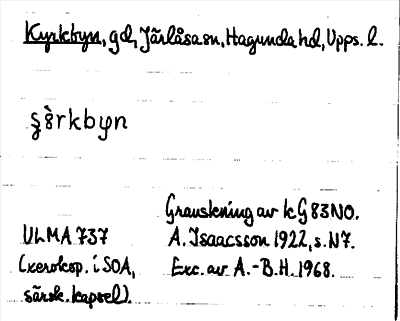 Kyrkbyn, gd, Järlåsa sn, Hagunda hd, Upps. l.
ʂö̀rkbyn
Granskning av kG 83 NO.
ULMA 737 A. Isaacsson 1922, s. N7.
(xerokop. i SOA, Exc. av A.-B.H. 1968.
särsk. kapsel).